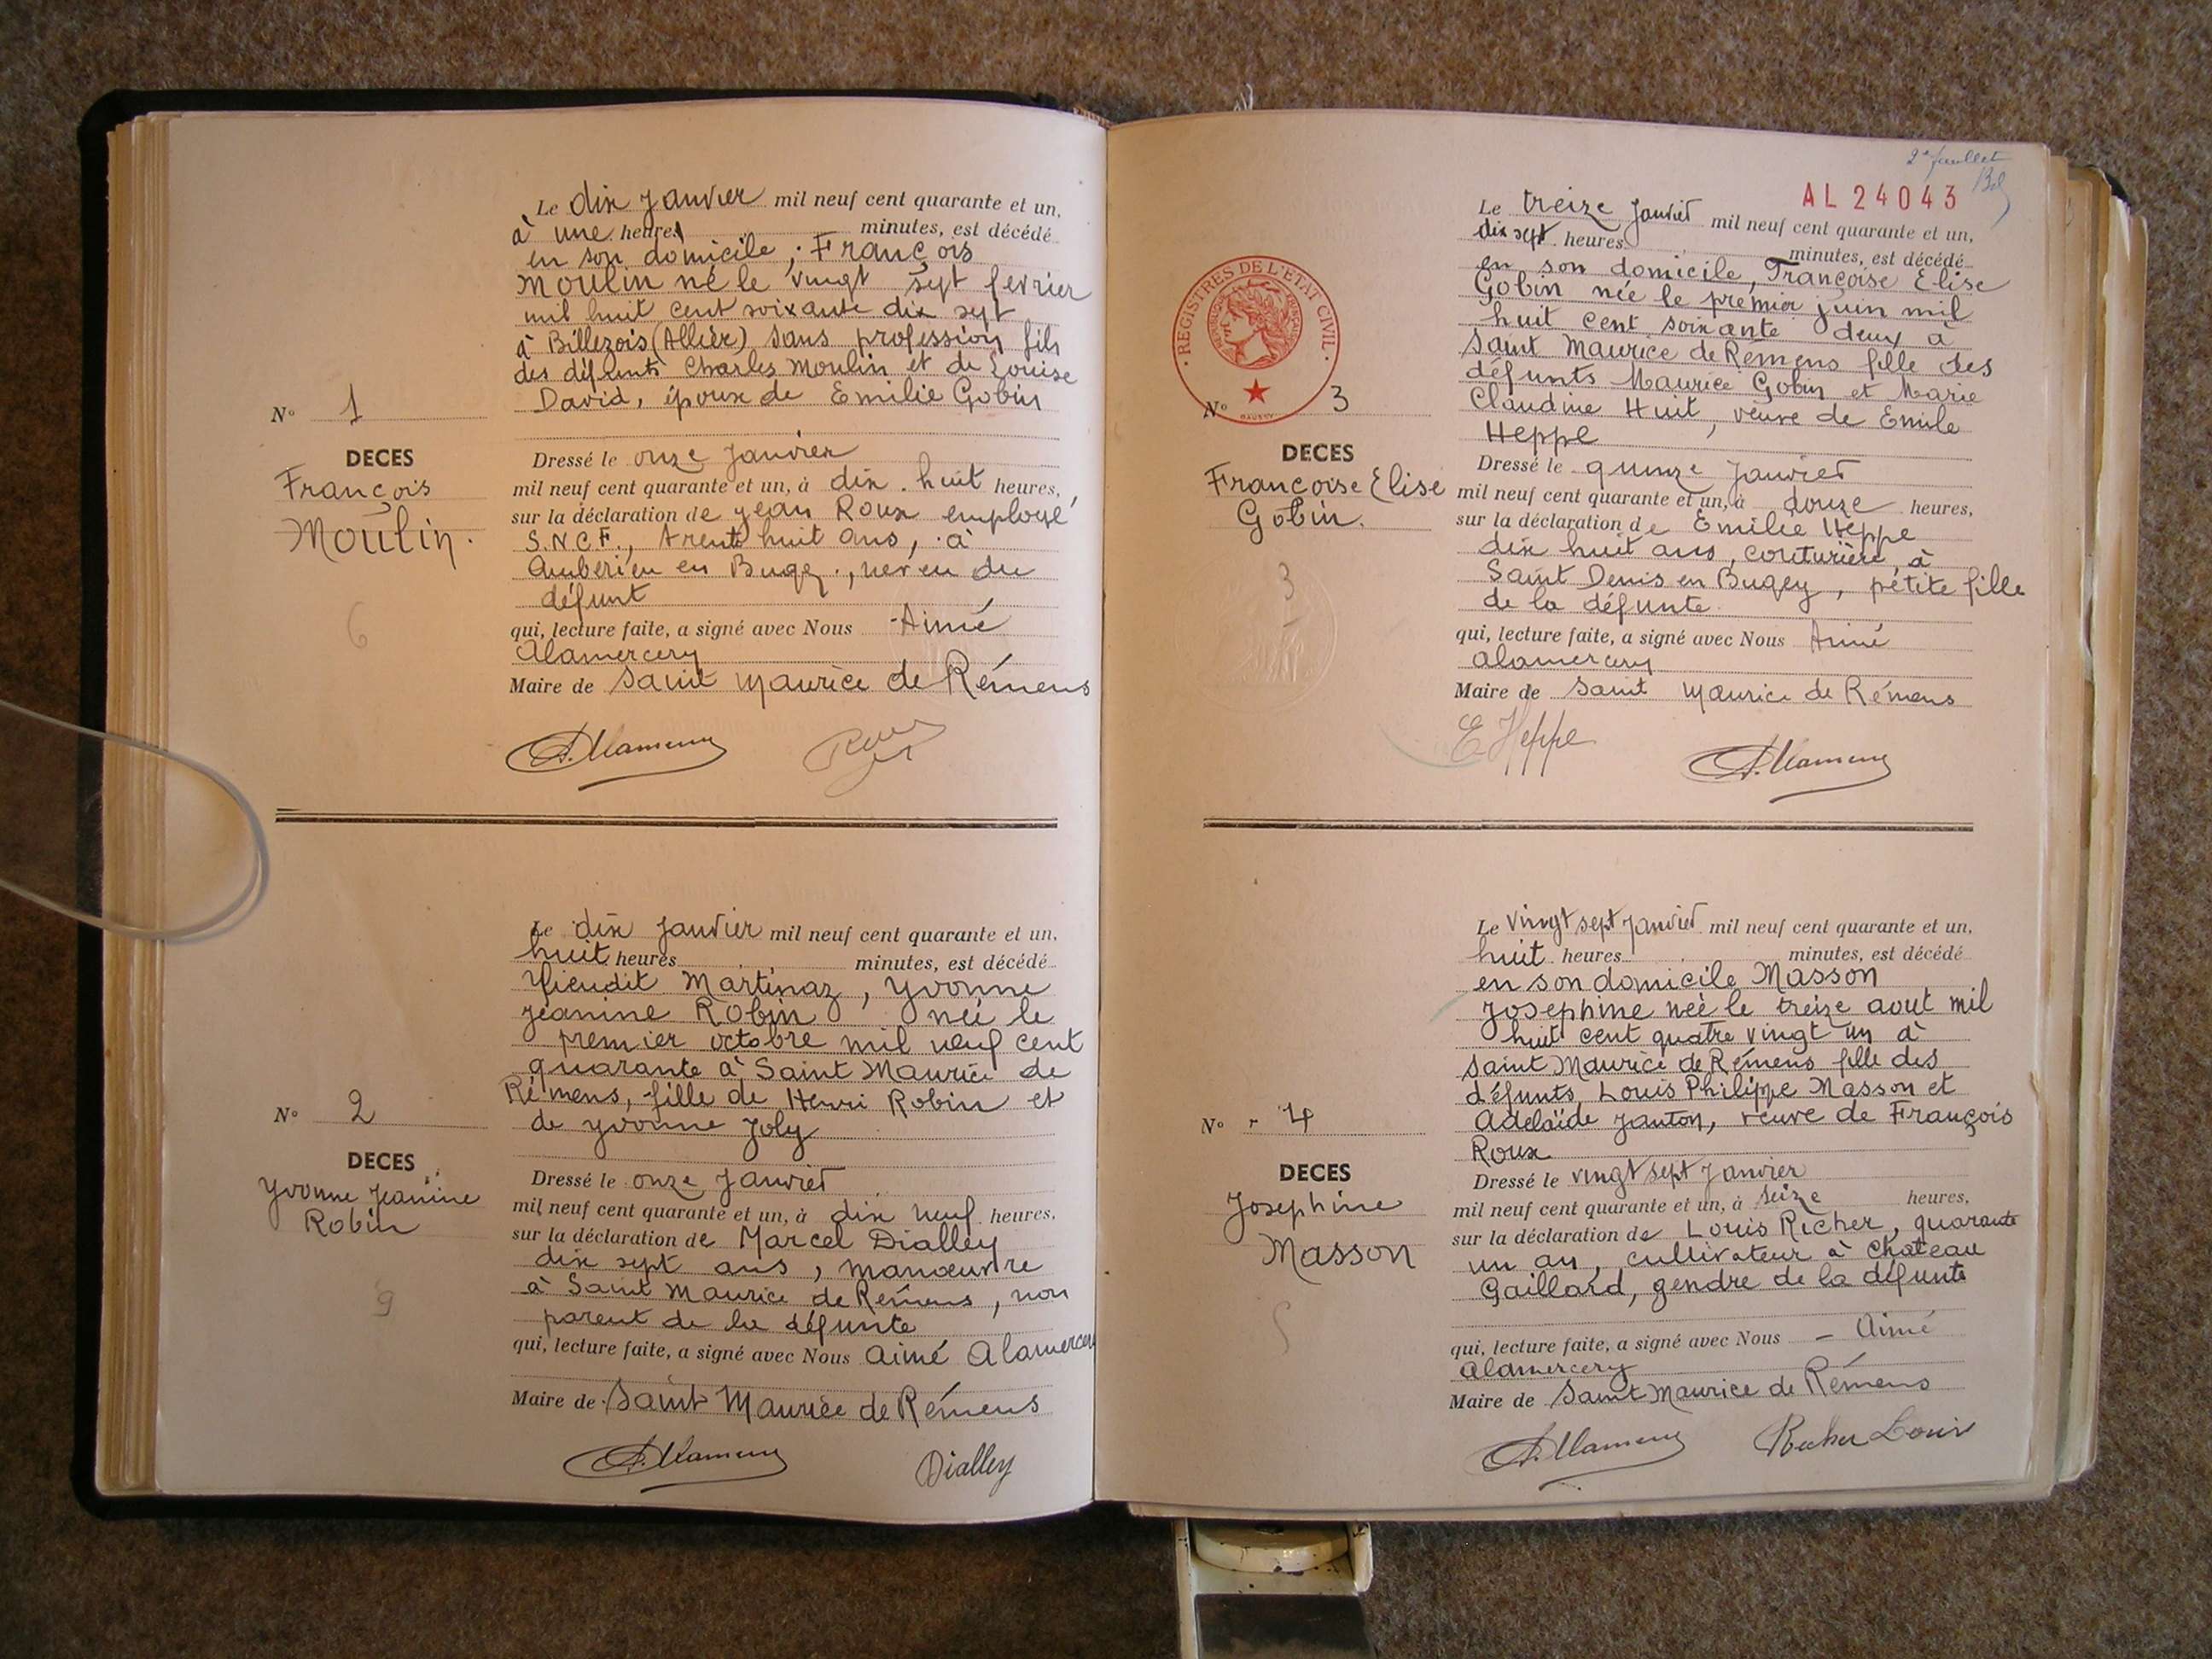 Le dix Janvier mil neuf cent quarante et un,
à une heures minutes, est décédé
en son domicile, François
Moulin né le vingt sept fevrier
mil huit cent soixante dix sept
à Billezois (Allier) sans profession fils
des défunts Charles Moulin et de Louise
David, époux de Emilie Gobin
N° 1
DECES
François
Moulin.
Dressé le onze Janvier
mil neuf cent quarante et un, à dix huit heures,
sur la déclaration de Jean Roux employé
S.N.C.F., trente huit ans, à
Ambérieu en Bugey, neveu du
défunt
6
qui, lecture faite, a signé avec Nous Aimé
Alamercery
Maire de Saint Maurice de Rémens
Le dix Janvier mil neuf cent quarante et un,
huit heures minutes, est décédé
lieudit Martinaz, Yvonne
Jeanine Robin née le
premier octobre mil neuf cent
quarante à Saint Maurice de
Rémens, fille de Henri Robin et
de Yvonne Joly
N° 2
DECES
Yvonne Jeanine
Robin
Dressé le onze Janvier
mil neuf cent quarante et un, à dix neuf heures,
sur la déclaration de Marcel Dialley
dix sept ans, manœuvre
à Saint Maurice de Rémens, non
parent de la défunte
9
qui, lecture faite, a signé avec Nous Aimé Alamercery
Maire de Saint Maurice de Rémens
Dialley
2e feuillet
AL 24043
Le treize Janvier mil neuf cent quarante et un,
dix sept heures minutes, est décédé
en son domicile, Françoise Elise
Gobin née le premier juin mil
huit cent soixante deux à
Saint Maurice de Rémens fille des
défunts Maurice Gobin et Marie
Claudine Huit, veuve de Emile
Heppe
REGISTRES DE L'ETAT CIVIL
N° 3
DECES
Francoise Elise
Gobin.
Dressé le quinze Janvier
mil neuf cent quarante et un, à douze heures,
sur la déclaration de Emilie Heppe
dix huit ans, couturière, à
Saint Denis en Bugey, petite fille
de la défunte
3
qui, lecture faite, a signé avec Nous Aimé
Alamercery
Maire de Saint Maurice de Rémens
E Heppe
Le vingt sept Janvier mil neuf cent quarante et un,
huit heures minutes, est décédé
en son domicile Masson
Josephine née le treize aout mil
huit cent quatre vingt un à
Saint Maurice de Rémens fille des
défunts Louis Philippe Masson et
Adelaïde Janton, veuve de François
Roux
N° 4
DECES
Josephine
Masson
Dressé le vingt sept Janvier
mil neuf cent quarante et un, à seize heures,
sur la déclaration de Louis Richer, quarante
un an, cultivateur à Chateau
Gaillard, gendre de la défunte
qui, lecture faite, a signé avec Nous - Aimé
Alamercery
Maire de Saint Maurice de Rémens
Richer Louis